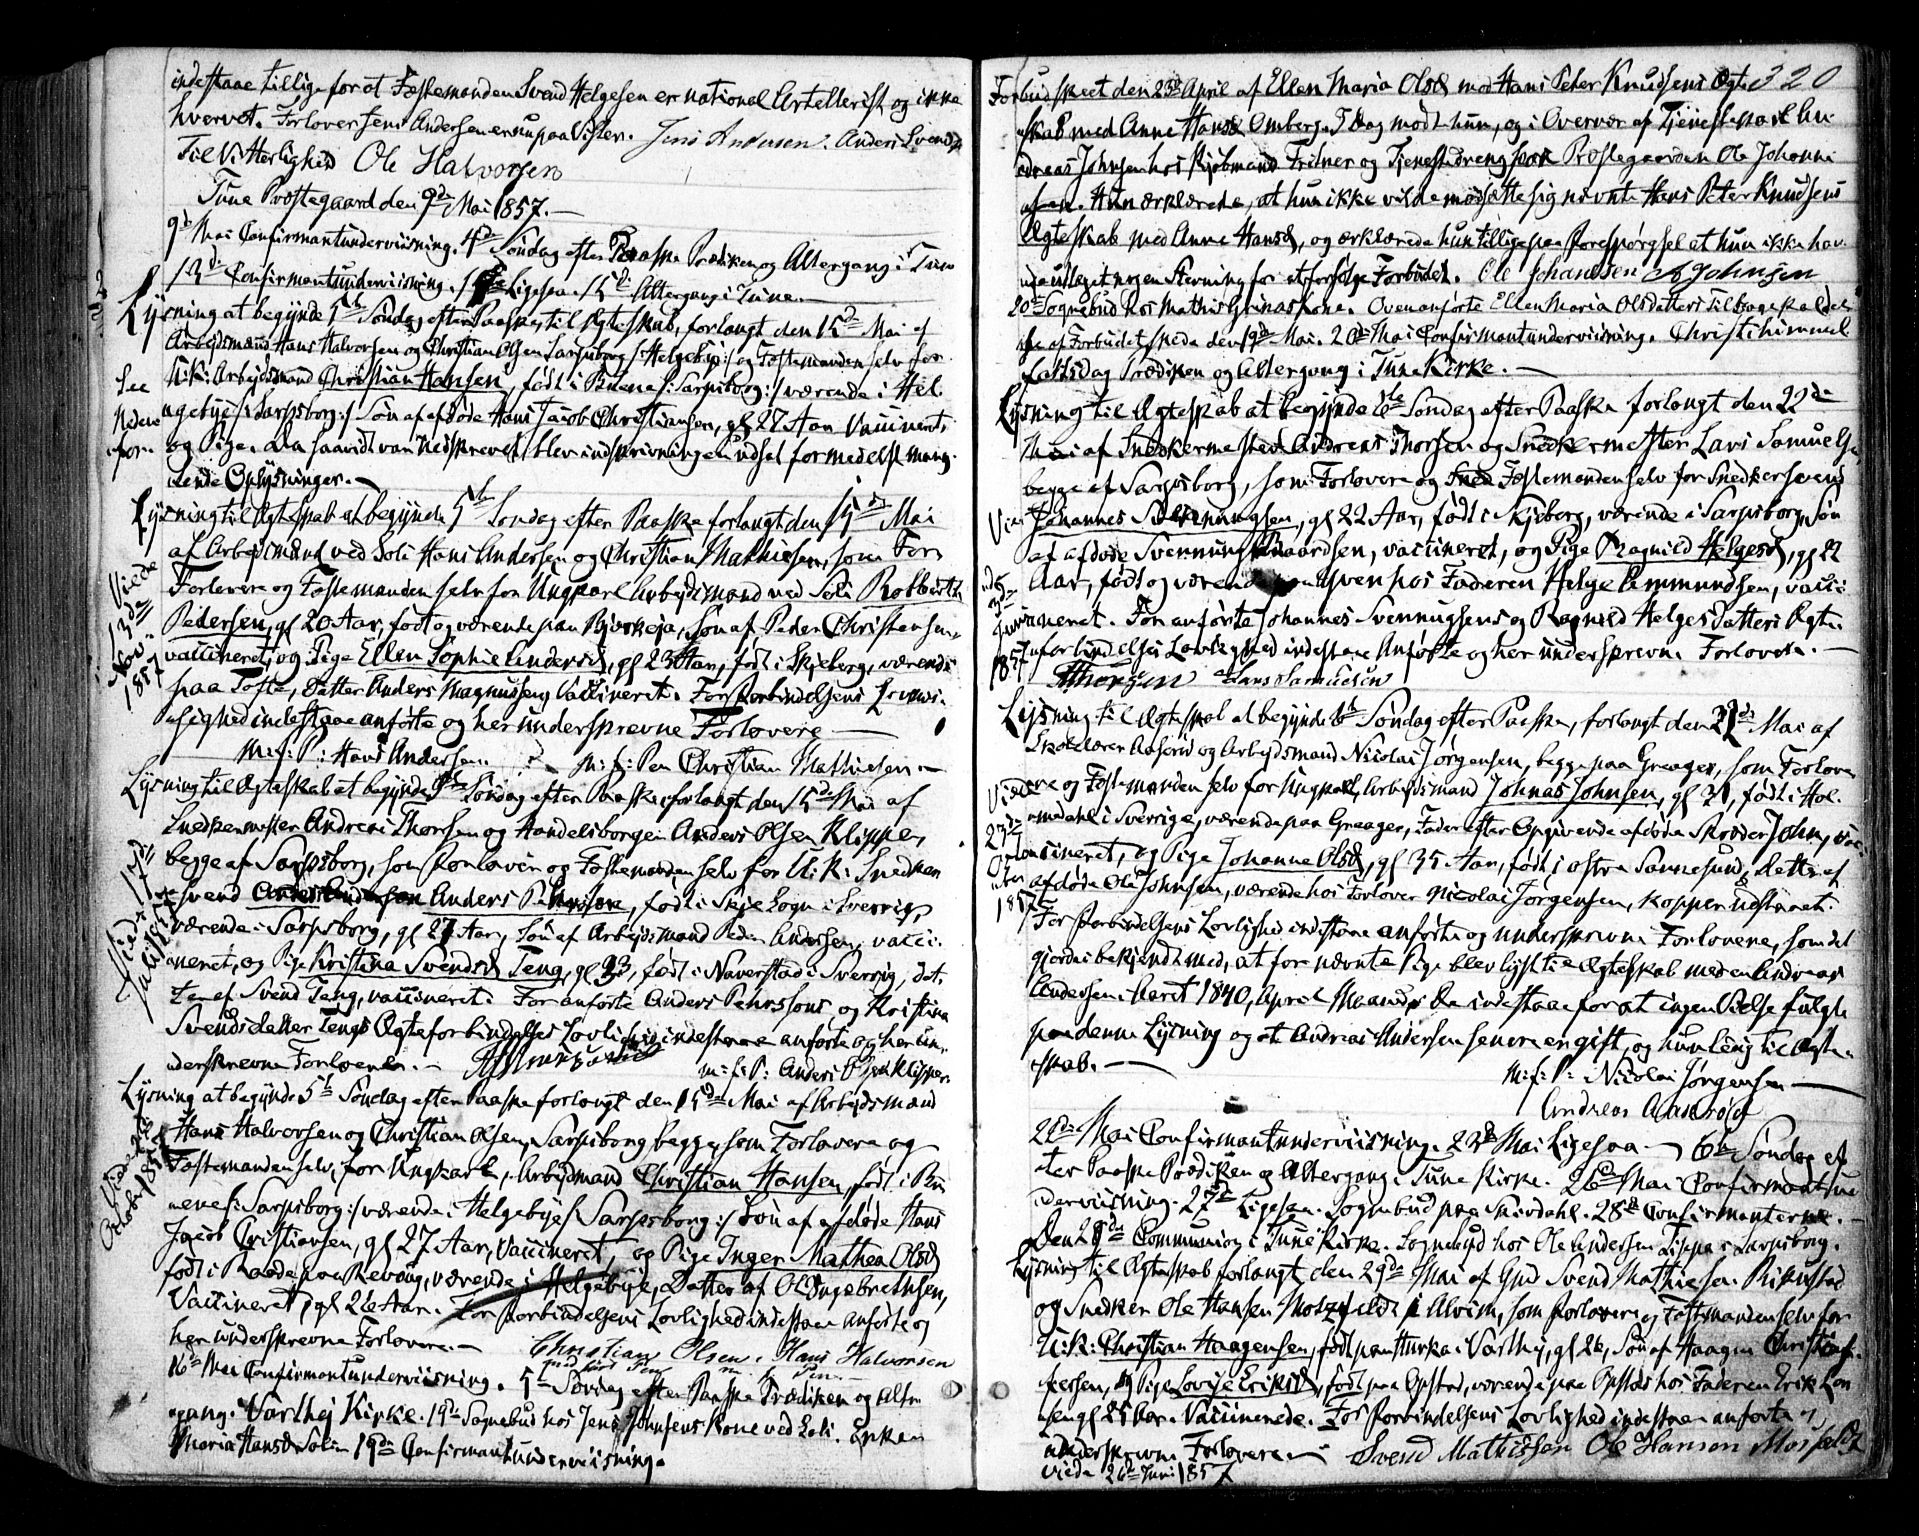 indestaae tillige for at Fæstemanden Svend Helgesen er national Artellerist og ikke
hvervet. Forlover Jens Andersen er nu paa Visler. Jens Andersen. Anders Svends
Til Vitterlighed Ole Halvorsen
Tune Præstegaard den 9de Mai 1857.
9de Mai Confirmantundervisning. 4de Søndag efter Paaske Prædiken og Altergang i Tune
13de Confirmantundervisning. Ligesaa. 15de Altergang i Tune.
Lysning at begynde 5te Søndag efter Paaske, til Ægteskab, forlangt den 15de Mai af
Arbeidsmænd Hans Halvorsen og Christian Olsen Sarpsborg /:Helgebye:/ og Fæstemanden selv for
U:K: Arbeidsmand Christian Hansen, født i Sarpsborg:/ værende i Hel
See
Neden
for.
ngebye /:Sarpsborg:/ Søn af afdøde Hans Jacob Christiansen, gl 27 Aar Vaccineret,
og Pige. Da saavidt var nedskrevet blev indskrivningen udsat formedelst mang-
lende Oplysninger.
Lysning til Ægteskab at begynde 5te Søndag efter Paaske forlangt den 15de Mai
af Arbeidsmænd ved Soli Hans Andersen og Christian Mathiesen, som For
Forlovere og Fæstemanden selv for Ungkarl Arbeidsmand ved Soli
Pedersen, gl 20 Aar, født og værende paa Bjerkøja, Søn af Peder Christensen
vaccineret, og Pige Ellen Sophie Andersd, gl 23 Aar, født i Skjeberg, værende
Viede
13de
Nov.
1857
paa Tofte, Datter Anders Magnussen, Vaccineret. For Forbindelsens Lov
lighed indestaae anførte og her underskrevne Forlovere
m: f: P: Hans Andersen. m: f: Pen Christian Mathiesen.
Lysning til Ægteskab at begynde 5te Søndag efter Paaske, forlangt den 15de Mai af
Snedkermester Andreas Thorsen og Handelsborger Anders Olsen Klipper,
begge af Sarpsborg, som Forlovere og Fæstemanden selv for U:K: Snedker
svend Anders Pehrsson, født i Skee Sogn i Sverrig,
værende i Sarpsborg, gl 27 Aar, Søn af Arbeidsmand Peder Andersen, vacci-
neret, og Pige Kristina Svendsd Teng, gl 33, født i Naverstad i Sverrig, dat
Viede 17de
Juli 1857
ter af Svend Teng, vaccineret. For anførte Anders Pehrssons og Kristina
Svendsdatter Tengs Ægteforbindelses Lovlighed indestaae anførte og her un-
derskrevne Forlovere.
m: f: P: Anders Olsen Klipper
Lysning at begynde 5te Søndag efter Paaske forlangt den 15de Mai af Arbeidsmænd
Hans Halvorsen og Christian Olsen, Sarpsborg begge, som Forlovere og
Fæstemanden selv, for Ungkarl, Arbeidsmand Christian Hansen, født i
/:Sarpsborg:/ værende i Helgebye /:Sarpsborg:/ Søn af afdøde Hans
Jacob Cristiansen, gl 27 Aar, Vaccineret, og Pige Inger Mathea Olsd
Viede
October 1857
født i Raade paa, værende i Helgebye, Datter af Ole Ingebrethsen,
Vaccineret, gl 26 Aar. For Forbindelsens Lovlighed indestaae anførte og
her underskrevne Forlovere. Christian Olsen. Hans Halvorsen
med ført Pen m. f. Pen.
16de Mai Confirmantundervisning. 5te Søndag efter Paaske Prædiken og Alter
gang. Varthej Kirke. 19de Sognebud hos Jens Johnsens Kone ved Soli. Enken
Maria Hansd Soli. 19de Confirmantundervisning.
320
Forbud skeet den 23de April af Ellen Maria Olsd mod Hans Peter Knudsens Ægte
skab med Anne Hansd Omberg. I Dag mødt hun, og i Overvær af Tjenestekarl An-
dreas Johnsen hos Kjøbmand og Tjenestedreng paa Præstegaarden Ole Johanne
sen. Hun erklærede, at hun ikke vilde modsætte sig nævnte Hans Peter Knudsens
Ægteskab med Anne Hansd, og erklærede hun tillige paa Forespørgsel at hun ikke hav-
de udtaget nogen Stevning for at forfølge Forbudet. Ole Johanssen A Johnsen
20de Sognebud hos Mathis Kone. Ovenanførte Ellen Maria Olsdatters Tilbagekaldel-
se af Forbudet skede den 19de Mai. 20de Mai Confirmantundervisning. Christi himmel
fartsdag Prædiken og Altergang i Tune Kirke.
Lysning til Ægteskab at begynde 6te Søndag efter Paaske forlangt den 22de
Mai af Snedkermester Andreas Thorsen og Snedkermester Lars Samuelsen
begge af Sarpsborg, som Forlovere og Fæstemanden selv for Snedkersvend
Johannes Svennungsen, gl 22 Aar, født i Skjeberg, værende i Sarpsborg, Søn
af afdøde Svennung Baardsen, vaccineret, og Pige Ragnild Helgesd, gl 22
Aar, født og værende hos Faderen Helge Ammundsen, vacci
neret. For anførte Johannes Svennugsens og Ragnild Helges Datters Ægte
forbindelses Lovlighed indestaae Anførte og her underskrevne Forlovere.
1857
AThorsen Lars Samuelsen
Lysning til Ægteskab at begynde 6te Søndag efter Paaske, forlangt den 22de Mai af
Skolelærer Aaserød og Arbeidsmand Nicolai Jørgensen, begge paa Greager, som Forlove
re og Fæstemanden selv for Ungkarl, Arbeidsmand Johnas Johnsen, gl 31, født i Hol-
medahl i Sverrige, værende paa Greager, Fader efter Opgivende afdøde Skræder John, vac-
cineret, og Pige Johanne Olsd, gl 35 Aar, født i østre Sannesund, datter af
Viede
23de
Octo
ber
1857
afdøde Ole Johnsen, værende hos Forlover Nicolai Jørgensen, kopper udstaaet.
For Forbindelsens Lovlighed indestaae anførte og underskrevne Forlovere, som det
gjordes bekjendt med, at for nævnte Pige blev lyst til Ægteskab med en Andreas
Andersen i Aaret 1840, April Maaned, da indestaae for at ingen Vielse fulgte
paa denne Lysning og at Andreas Andersen senere er gift, og hun ledig til Ægte-
skab.
m: f: P: Nicolai Jørgensen
Andreas Aaserød
22de Mai Confirmantundervisning. 23de Mai Ligesaa. 6te Søndag ef
ter Paaske Prædiken og Altergang i Tune Kirke. 26de Mai Confirmantun
dervisning. 27de Ligesaa. Sognebud paa. 28de Confirmanterne.
Den 29de Communion i Tune Kirke. Sognebud hos Ole Andersen Lippe i Sarpsborg.
Lysning til Ægteskab forlangt den 29de Mai af Svend Mathiesen
og Snedker Ole Hansen Mosfeldt i Alvim, som Forlovere og Fæstemanden selv for
U:K: Christian Haagensen, født paa Hurka i Varthej, gl 26, Søn af Haagen Christof-
fersen, og Pige Lovise Eriksd, født paa Opstad, værende paa Opstad hos Faderen Erik Lar
sen gl 25 Aar. Vaccinerede. For Forbindelsens Lovlighed indestaae anførte og
underskrevne Forlovere. Svend Mathissen Ole Hansen Mosfeldt
viede 26de Juni 1857